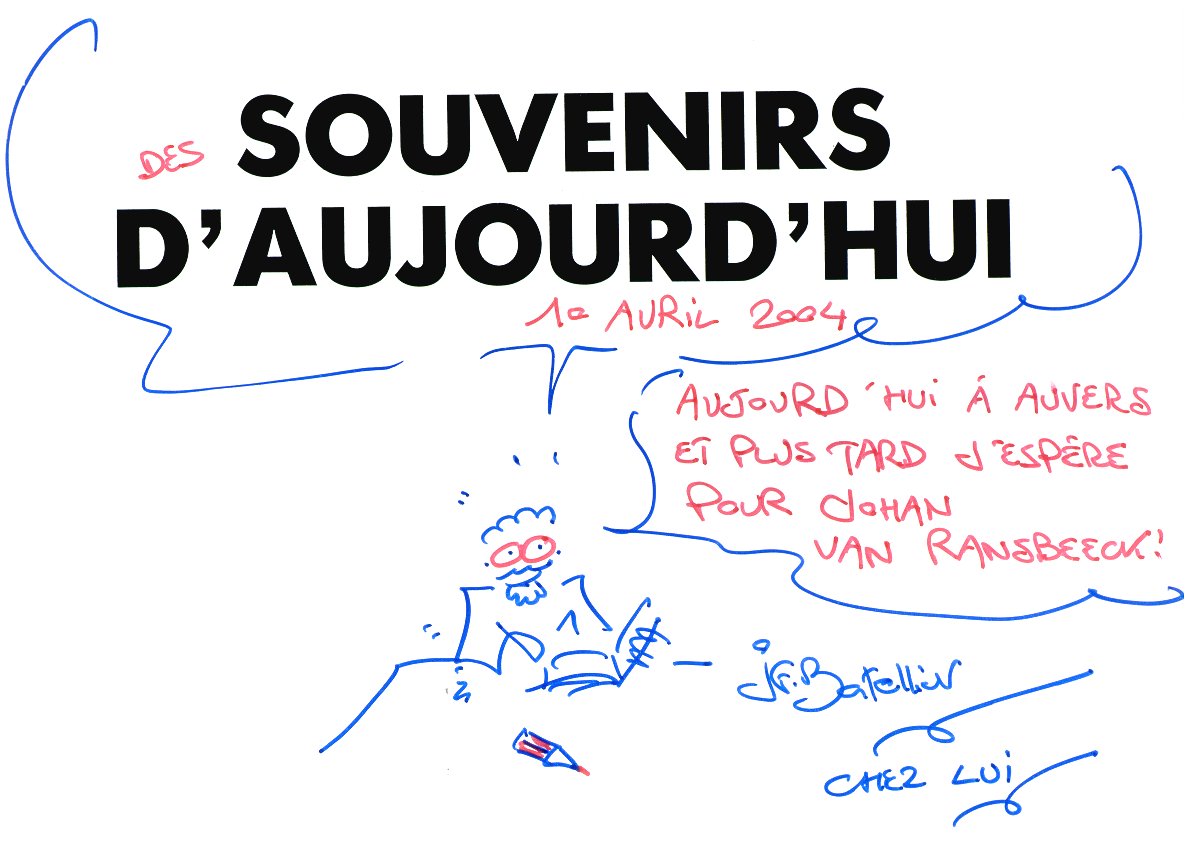 DES SOUVENIRS
D'AUJOURD'HUI
10 AVRIL 2004
AUJOURD'HUI À AUVERS
ET PLUS TARD J'ESPÈRE
POUR JOHAN
VAN RANSBEECK!
JF. Batellier
CHEZ LUI